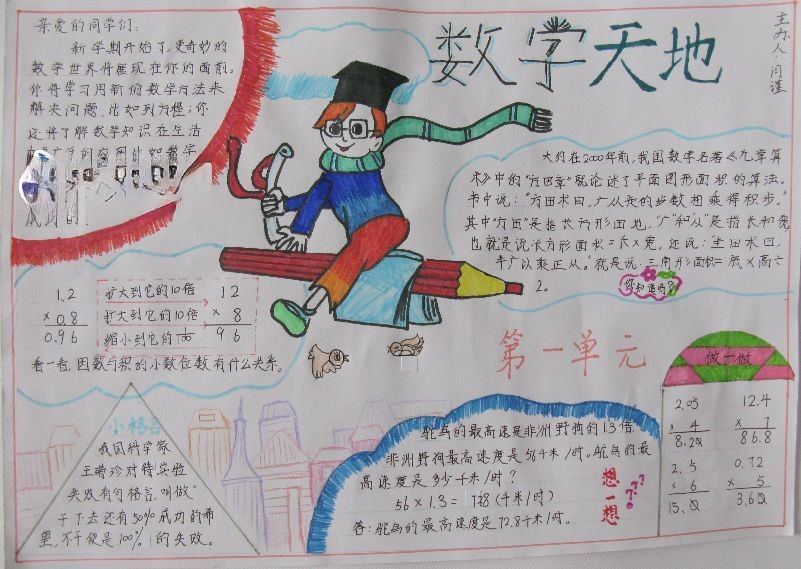 亲爱的同学们:
新学期开始了,更奇妙的
数学世界将展现在你的面前。
你将学习用新的数学方法来
解决问题,比如列方程;你
还将了解数学知识在生活
数学天地
主办人:闫谨
大约在2000年前,我国数字名著《九章算
术》中的“方田章”就论述了平面图形面积的算法。
书中说:“方田术曰,广从步的步数相乘得积步。”
其中“方田”是指长方形田地,“广”和“从”是指长和宽
也就是说长方形面积=长×宽。还说:“圭田术曰,
半广以乘正从。”就是说:三角形面积=底×高÷
2。
你知道吗?
1.2 扩大到它的10倍 12
×0.8 扩大到它的10倍 × 8
0.96 缩小到它的1/100 96
看一看,因数与积的小数位数有什么关系。
第一单元
做一做
2.05 12.4
× 4 × 7
8.20 86.8
2.5 0.72
× 6 × 5
15.0 3.60
小格言
我国科学家
王菊珍对待实验
失败有句格言,叫做“
干下去还有50%成功的希
望,不干便是100%的失败。
鸵鸟的最高速是非洲野狗的1.3倍
非洲野狗最高速度是56千米/时。鸵鸟的最
高速度是多少千米/时?
56×1.3= 728(千米/时)
答:鸵鸟的最高速度是72.8千米/时。
想一想
???